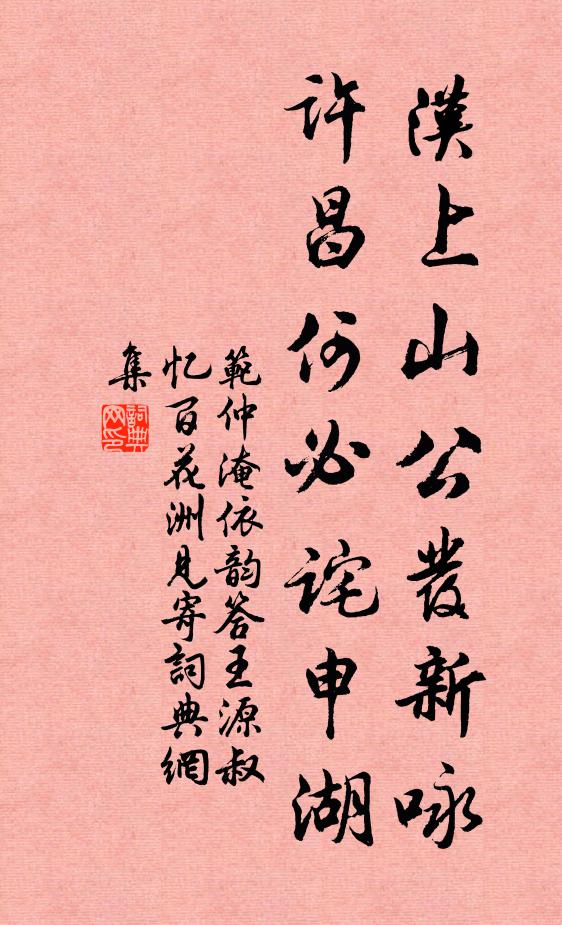 漢上山公發新咏
許昌何必詫申湖
範仲淹依韵答王源叔
忆百花洲見寄詞典網
集
詞典网印